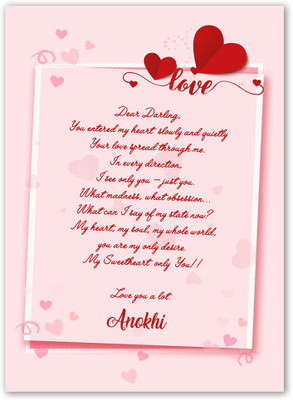 love
Dear Darling,
You entered my heart slowly and quietly
Your love spread through me.
In every direction,
I see only you – just you.
What madness, what obsession...
What can I say of my state now?
My heart, my soul, my whole world,
you are my only desire.
My Sweetheart only You!!
Love you a lot.
Anokhi